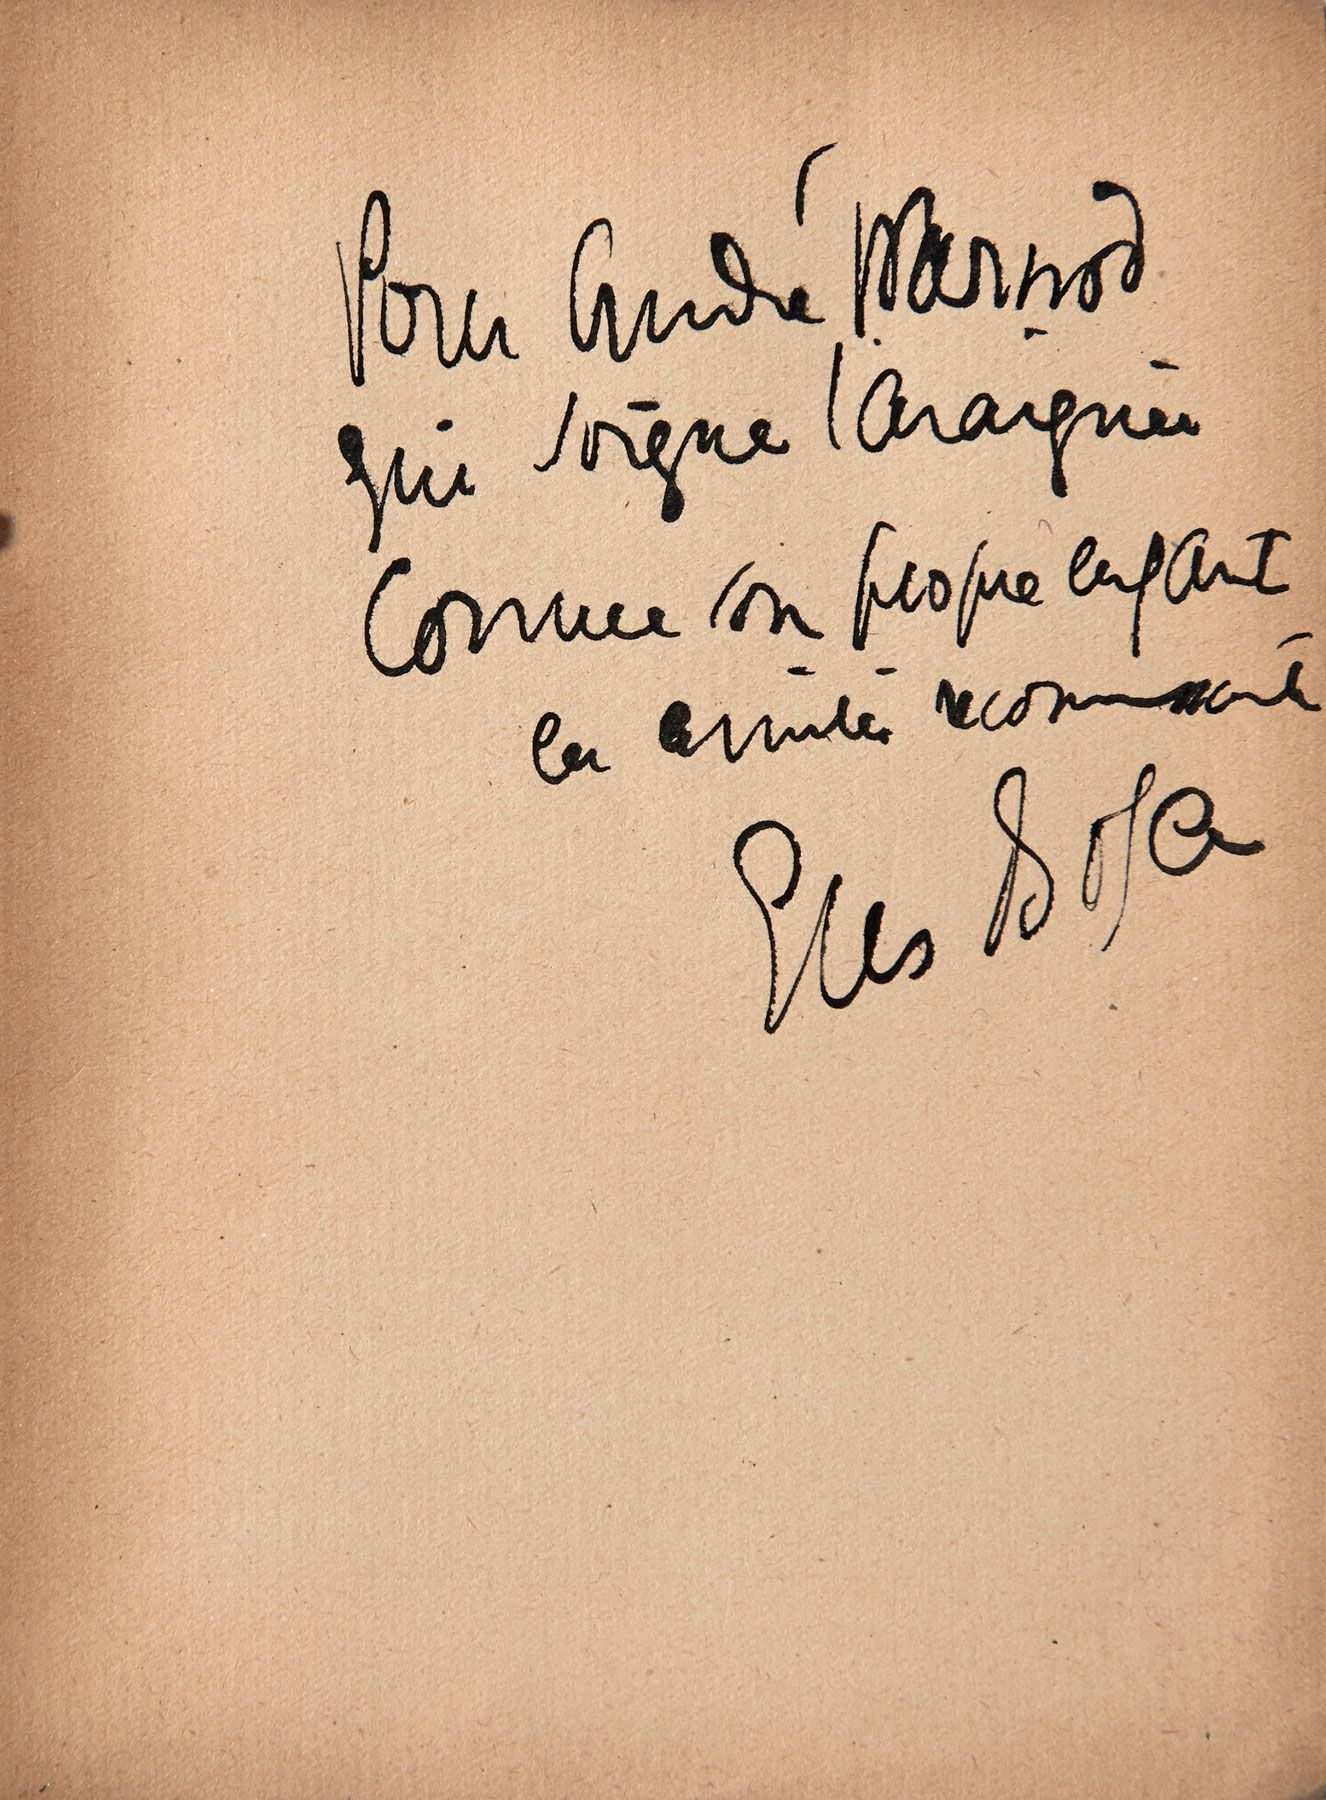 Pour André Warnod
qui soigne l'araignée
comme son propre enfant
en amitié reconnaissante
Gus Bofa